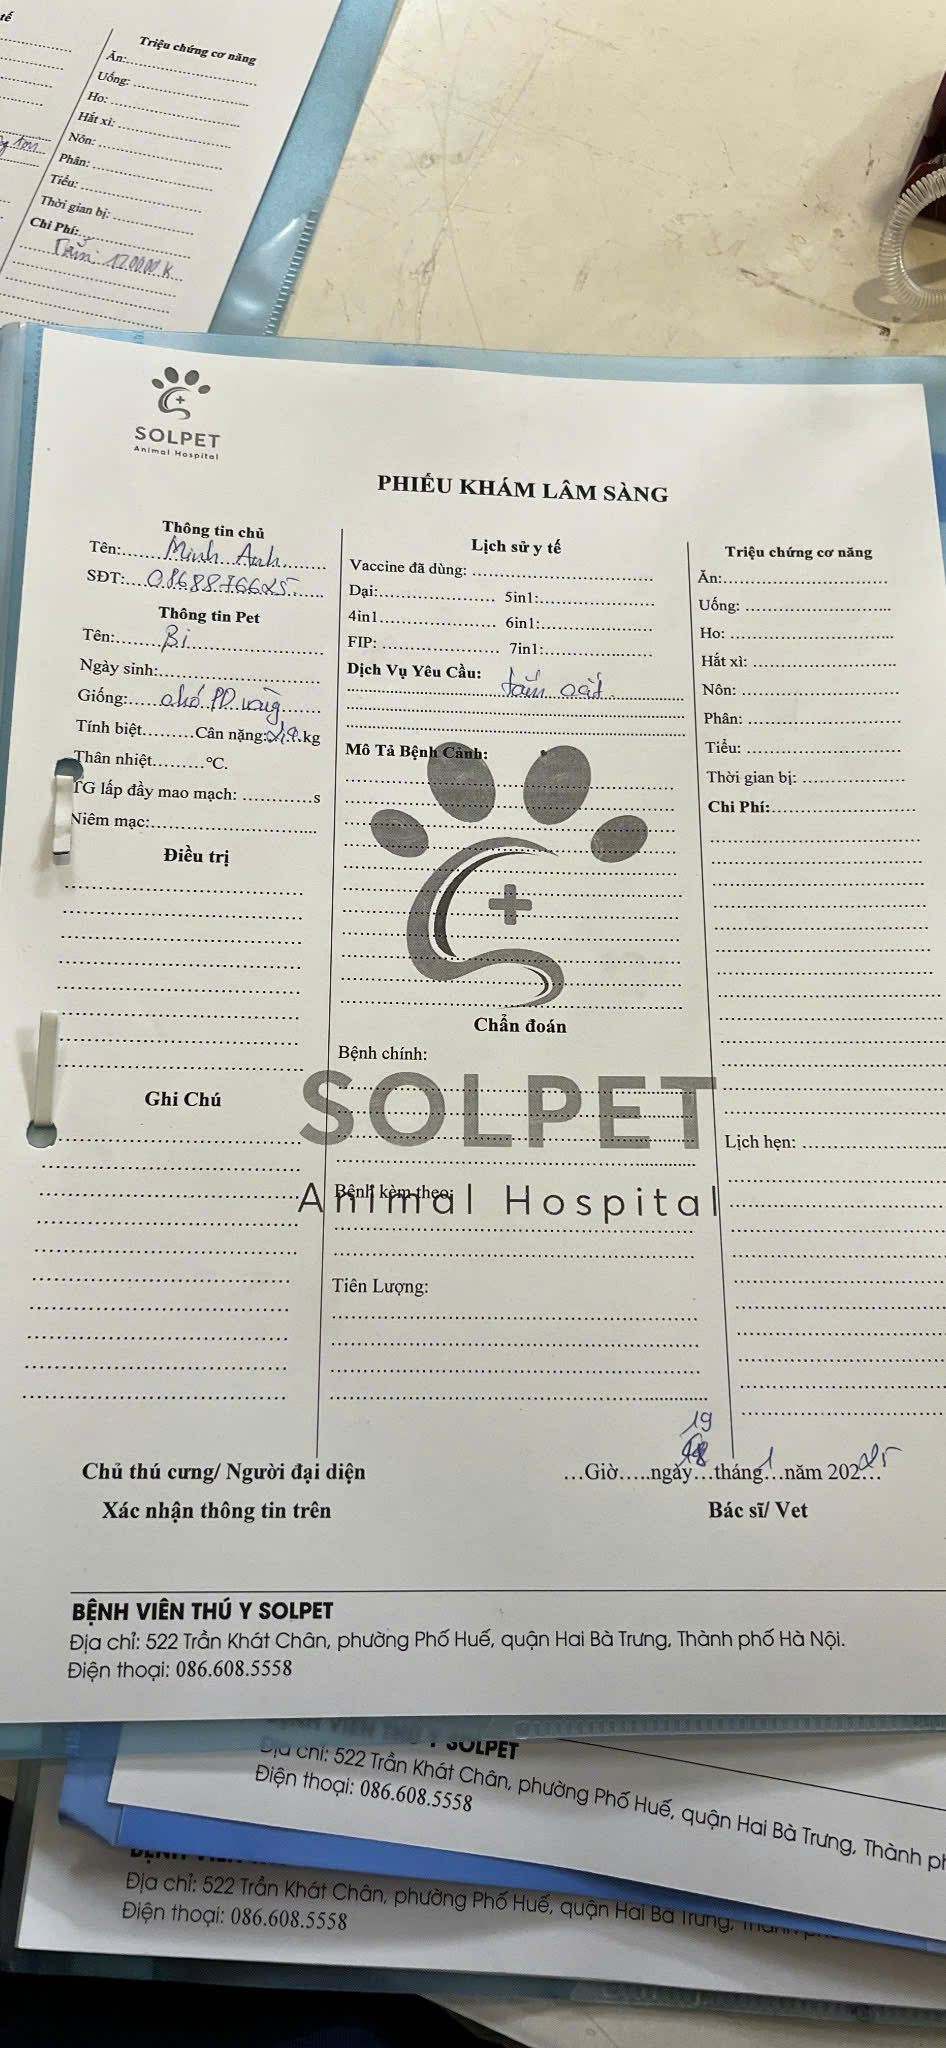 tế
Triệu chứng cơ năng
Ăn:
Uống:
Ho:
Hắt xì:
Nôn:
Phân:
Tiểu:
Thời gian bị:
Chi Phí:
Tắm 120000k
SOLPET
Animal Hospital
PHIẾU KHÁM LÂM SÀNG
Thông tin chủ
Tên: Minh Anh
SĐT: 0868876625
Thông tin Pet
Tên: Bi
Ngày sinh:
Giống: chó PD vàng
Tính biệt Cân nặng: kg
Thân nhiệt °C.
TG lấp đầy mao mạch: s
Niêm mạc:
Điều trị
Ghi Chú
Lịch sử y tế
Vaccine đã dùng:
Dại: 5in1:
4in1 6in1:
FIP: 7in1:
Dịch Vụ Yêu Cầu: tắm cắt
Mô Tả Bệnh Cảnh:
Chẩn đoán
Bệnh chính:
SOLPET
Bệnh kèm theo:
Animal Hospital
Tiên Lượng:
Triệu chứng cơ năng
Ăn:
Uống:
Ho:
Hắt xì:
Nôn:
Phân:
Tiểu:
Thời gian bị:
Chi Phí:
Lịch hẹn:
Chủ thú cưng/ Người đại diện
Xác nhận thông tin trên
19
Giờ ngày 18 tháng 1 năm 20225
Bác sĩ/ Vet
BỆNH VIÊN THÚ Y SOLPET
Địa chỉ: 522 Trần Khát Chân, phường Phố Huế, quận Hai Bà Trưng, Thành phố Hà Nội.
Điện thoại: 086.608.5558
BỆNH VIÊN THÚ Y SOLPET
Địa chỉ: 522 Trần Khát Chân, phường Phố Huế, quận Hai Bà Trưng, Thành ph
Điện thoại: 086.608.5558
Địa chỉ: 522 Trần Khát Chân, phường Phố Huế, quận Hai Bà Trưng,
Điện thoại: 086.608.5558